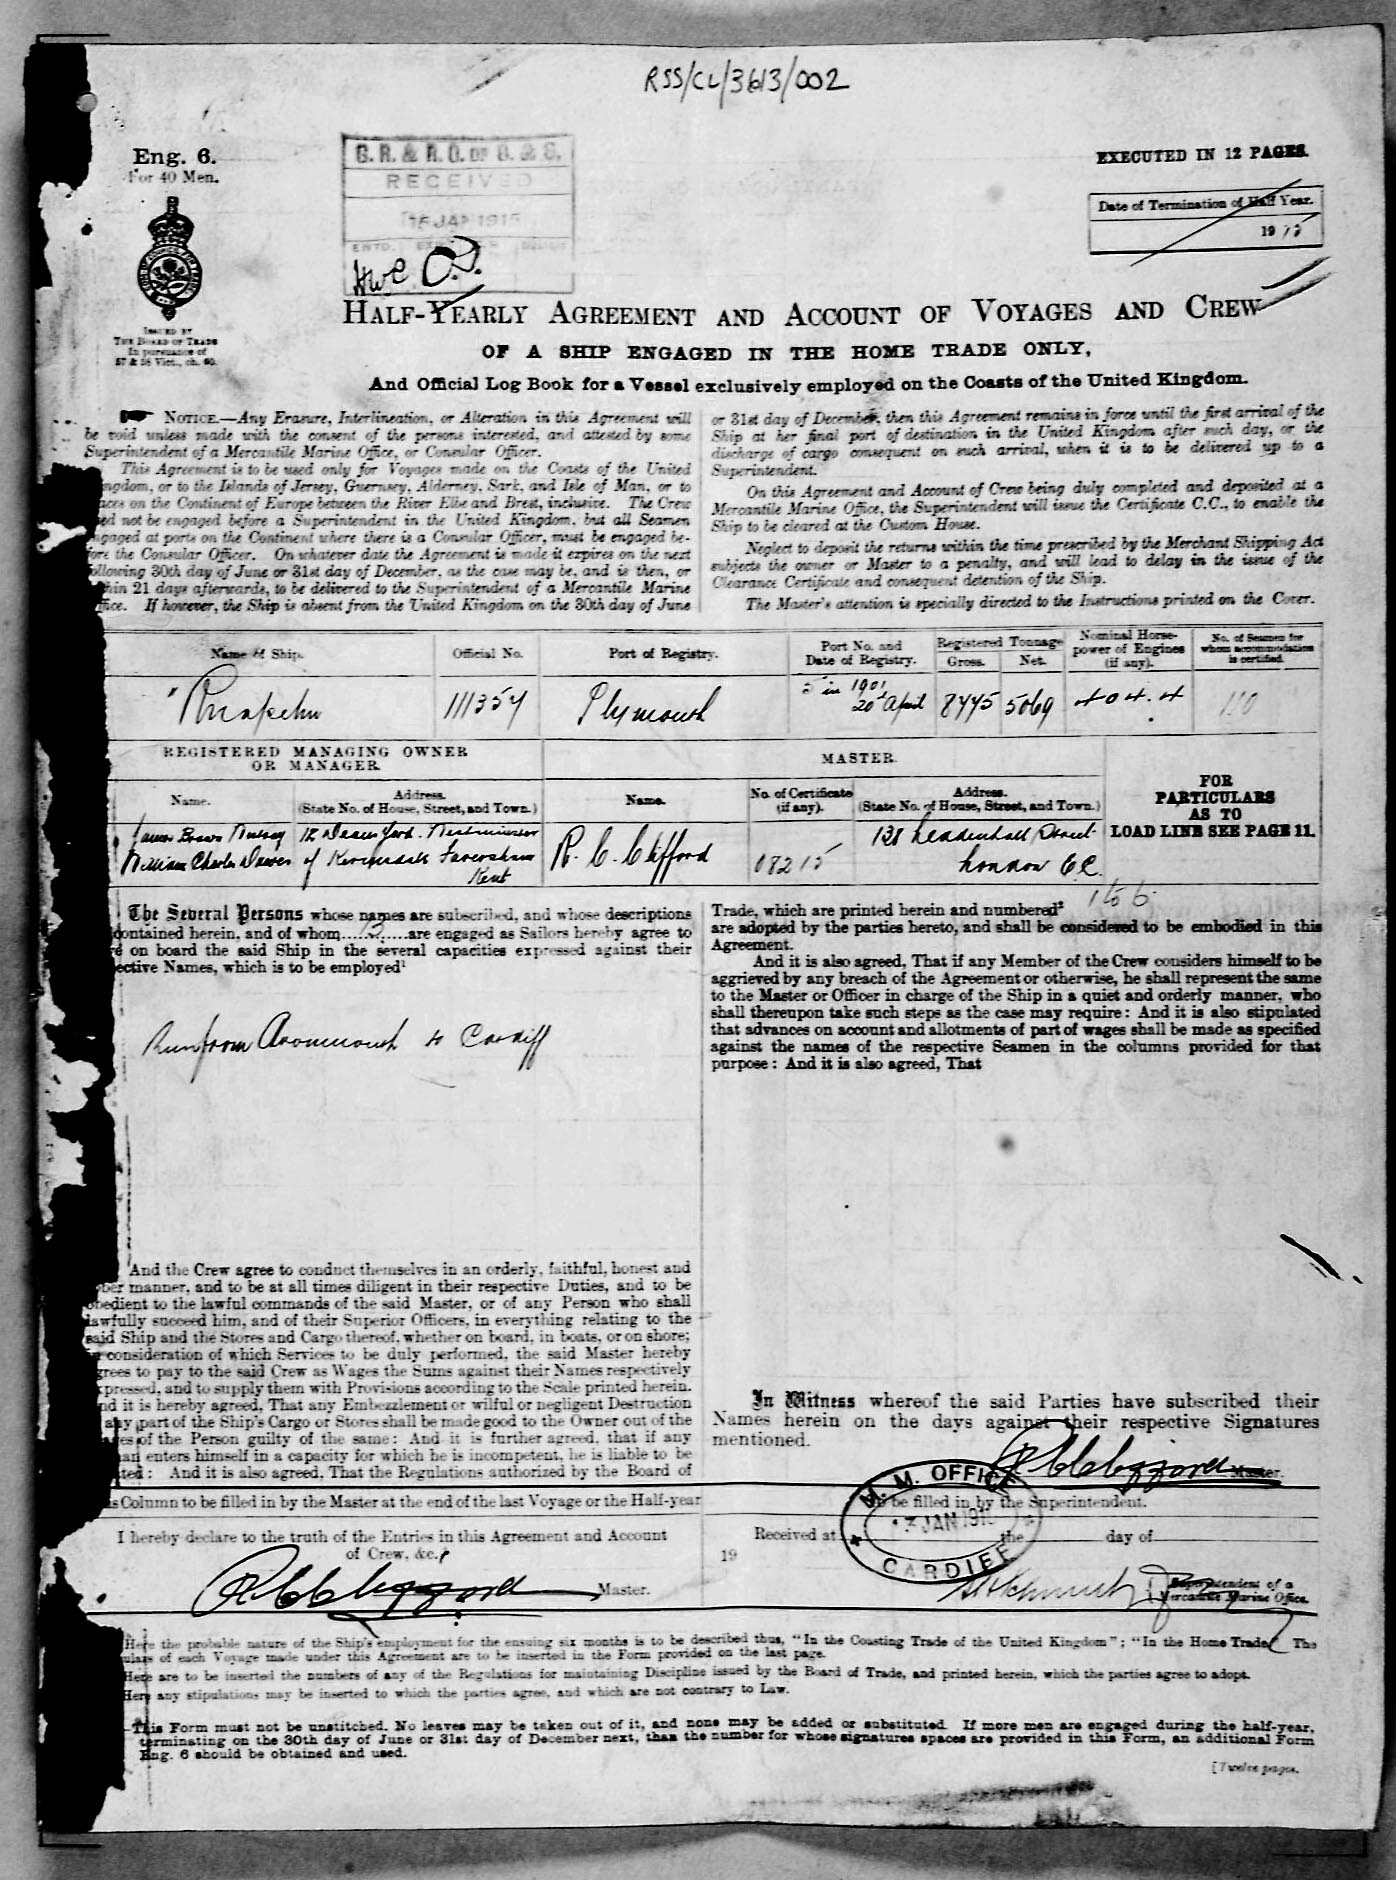 RSS/CL/3613/002
Eng. 6.
For 40 Men.
EXECUTED IN 12 PAGES.
RECEIVED
JAN 1915
Date of Termination of Half Year.
19 15
ISSUED BY
THE BOARD OF TRADE
In pursuance of
57 & 58 Vict., ch. 60.
HALF-YEARLY AGREEMENT AND ACCOUNT OF VOYAGES AND CREW
OF A SHIP ENGAGED IN THE HOME TRADE ONLY,
And Official Log Book for a Vessel exclusively employed on the Coasts of the United Kingdom.
NOTICE.—Any Erasure, Interlineation, or Alteration in this Agreement will
be void unless made with the consent of the persons interested, and attested by some
Superintendent of a Mercantile Marine Office, or Consular Officer.
This Agreement is to be used only for Voyages made on the Coasts of the United
ngdom, or to the Islands of Jersey, Guernsey, Alderney, Sark, and Isle of Man, or to
aces on the Continent of Europe between the River Elbe and Brest, inclusive. The Crew
ed not be engaged before a Superintendent in the United Kingdom, but all Seamen
ngaged at ports on the Continent where there is a Consular Officer, must be engaged be-
fore the Consular Officer. On whatever date the Agreement is made it expires on the next
ollowing 30th day of June or 31st day of December, as the case may be, and is then, or
thin 21 days afterwards, to be delivered to the Superintendent of a Mercantile Marine
ffice. If however, the Ship is absent from the United Kingdom on the 30th day of June
or 31st day of December, then this Agreement remains in force until the first arrival of the
Ship at her final port of destination in the United Kingdom after such day, or the
discharge of cargo consequent on such arrival, when it is to be delivered up to a
Superintendent.
On this Agreement and Account of Crew being duly completed and deposited at a
Mercantile Marine Office, the Superintendent will issue the Certificate C.C., to enable the
Ship to be cleared at the Custom House.
Neglect to deposit the returns within the time prescribed by the Merchant Shipping Act
subjects the owner or Master to a penalty, and will lead to delay in the issue of the
Clearance Certificate and consequent detention of the Ship.
The Master's attention is specially directed to the Instructions printed on the Cover.
Name of Ship.
Official No.
Port of Registry.
Port No. and
Date of Registry.
Registered Tonnage
Gross. Net.
Nominal Horse-
power of Engines
(if any).
No. of Seamen for
whom accommodation
is certified.
"Ruapehu
111357
Plymouth
5 in 1901
20 April
8445 5069
404.4
110
REGISTERED MANAGING OWNER
OR MANAGER.
MASTER.
Name.
Address.
(State No. of House, Street, and Town.)
Name.
No. of Certificate
(if any).
Address.
(State No. of House, Street, and Town.)
FOR
PARTICULARS
AS TO
LOAD LINE SEE PAGE 11.
James Brown 12 Deans Yard. Westminster
William Charles Dawes of Kemsdale Faversham
Kent
R. C. Clifford
08215
138 Leadenhall Street
London E.C.
The Several Persons whose names are subscribed, and whose descriptions
contained herein, and of whom 3 are engaged as Sailors hereby agree to
e on board the said Ship in the several capacities expressed against their
ective Names, which is to be employed¹
Run from Avonmouth to Cardiff
And the Crew agree to conduct themselves in an orderly, faithful, honest and
ber manner, and to be at all times diligent in their respective Duties, and to be
obedient to the lawful commands of the said Master, or of any Person who shall
lawfully succeed him, and of their Superior Officers, in everything relating to the
said Ship and the Stores and Cargo thereof, whether on board, in boats, or on shore;
in consideration of which Services to be duly performed, the said Master hereby
grees to pay to the said Crew as Wages the Sums against their Names respectively
xpressed, and to supply them with Provisions according to the Scale printed herein.
nd it is hereby agreed, That any Embezzlement or wilful or negligent Destruction
any part of the Ship's Cargo or Stores shall be made good to the Owner out of the
ages of the Person guilty of the same: And it is further agreed, that if any
man enters himself in a capacity for which he is incompetent, he is liable to be
ted: And it is also agreed, That the Regulations authorized by the Board of
Trade, which are printed herein and numbered² 1 to 6
are adopted by the parties hereto, and shall be considered to be embodied in this
Agreement.
And it is also agreed, That if any Member of the Crew considers himself to be
aggrieved by any breach of the Agreement or otherwise, he shall represent the same
to the Master or Officer in charge of the Ship in a quiet and orderly manner, who
shall thereupon take such steps as the case may require: And it is also stipulated
that advances on account and allotments of part of wages shall be made as specified
against the names of the respective Seamen in the columns provided for that
purpose: And it is also agreed, That
In Witness whereof the said Parties have subscribed their
Names herein on the days against their respective Signatures
mentioned.
R C Clifford Master.
is Column to be filled in by the Master at the end of the last Voyage or the Half-year
I hereby declare to the truth of the Entries in this Agreement and Account
of Crew, &c.
R C Clifford Master.
To be filled in by the Superintendent.
Received at the day of
19
M. M. OFFICE
JAN 191
CARDIFF
Superintendent of a
Mercantile Marine Office.
Here the probable nature of the Ship's employment for the ensuing six months is to be described thus, "In the Coasting Trade of the United Kingdom"; "In the Home Trade." The
ulars of each Voyage made under this Agreement are to be inserted in the Form provided on the last page.
Here are to be inserted the numbers of any of the Regulations for maintaining Discipline issued by the Board of Trade, and printed herein, which the parties agree to adopt.
Here any stipulations may be inserted to which the parties agree, and which are not contrary to Law.
—This Form must not be unstitched. No leaves may be taken out of it, and none may be added or substituted. If more men are engaged during the half-year,
terminating on the 30th day of June or 31st day of December next, than the number for whose signatures spaces are provided in this Form, an additional Form
Eng. 6 should be obtained and used.
[Twelve pages.